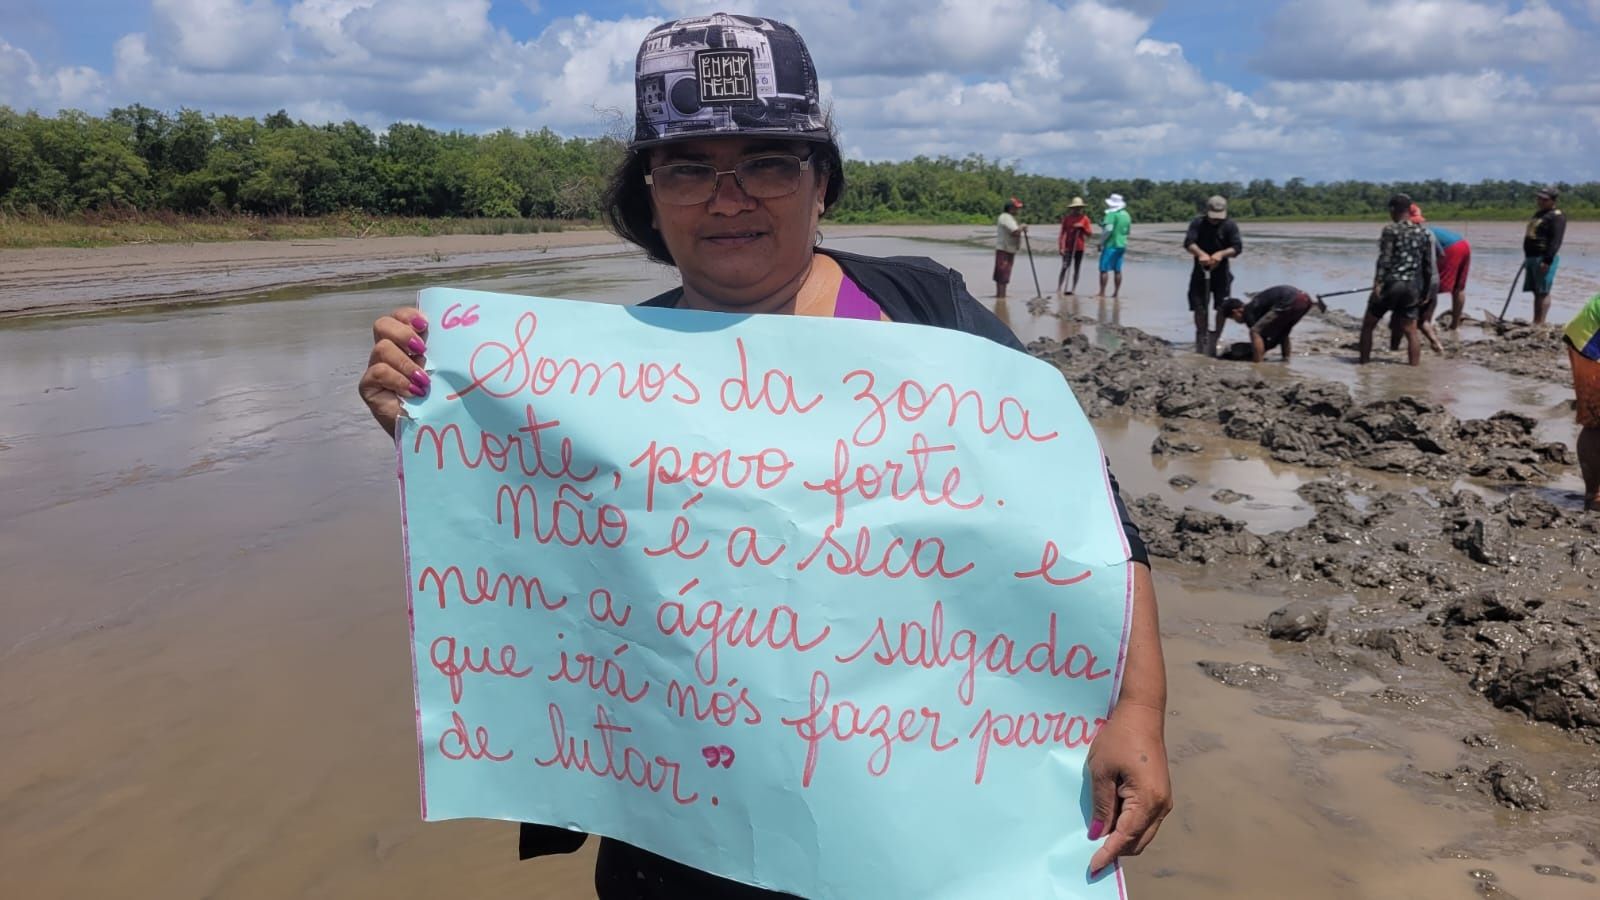 “Somos da zona
norte, povo forte.
Não é a seca e
nem a água salgada
que irá nós fazer parar
de lutar.”